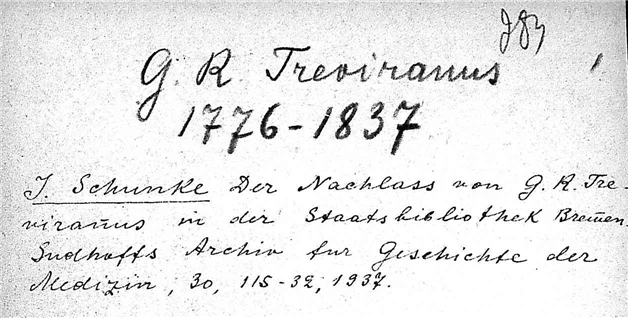 G. R. Treviranus
1776-1837
J. Schunke Der Nachlass von G. R. Tre-
viranus in der Staatsbibliothek Bremen.
Sudhoffs Archiv fur Geschichte der
Medizin, 30, 115-32, 1937.